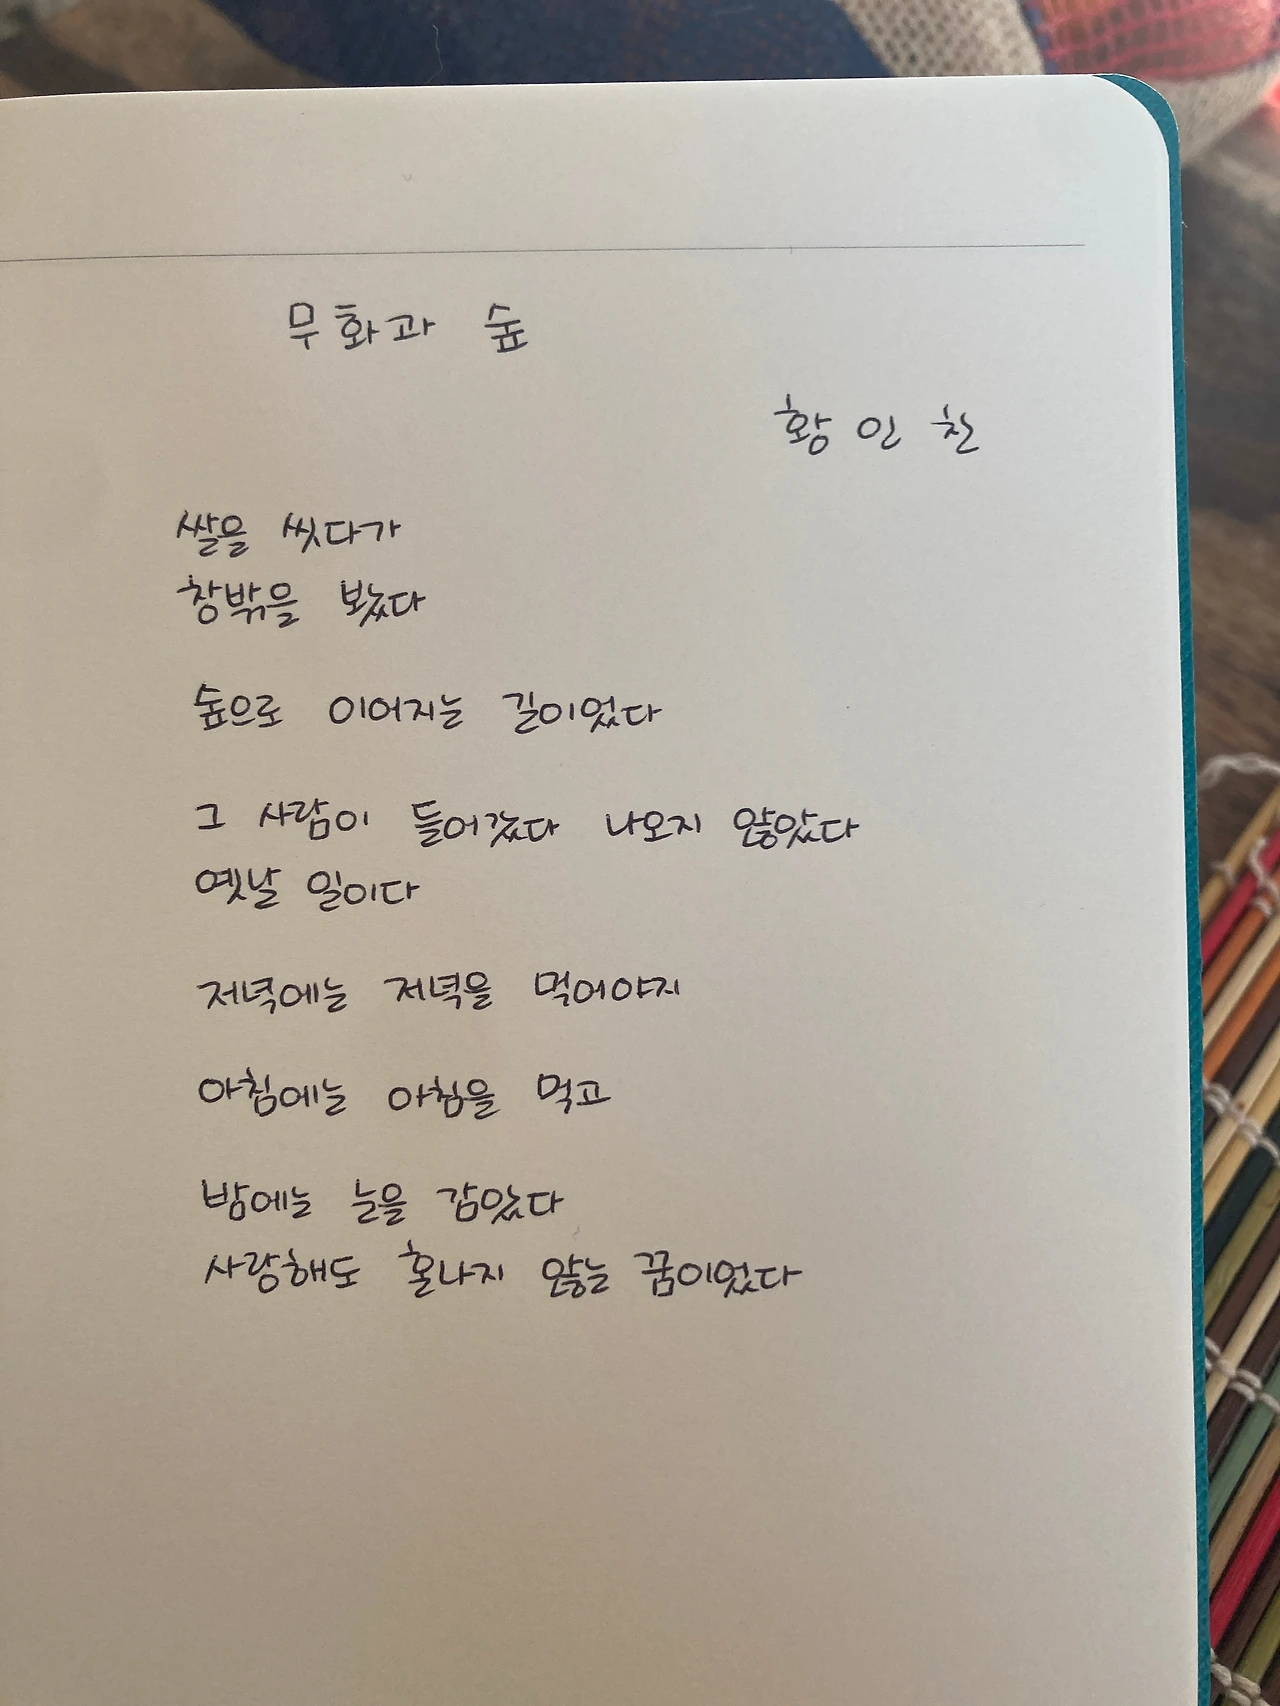 무화과 숲
황인찬
쌀을 씻다가
창밖을 봤다
숲으로 이어지는 길이었다
그 사람이 들어갔다 나오지 않았다
옛날 일이다
저녁에는 저녁을 먹어야지
아침에는 아침을 먹고
밤에는 눈을 감았다
사랑해도 혼나지 않는 꿈이었다